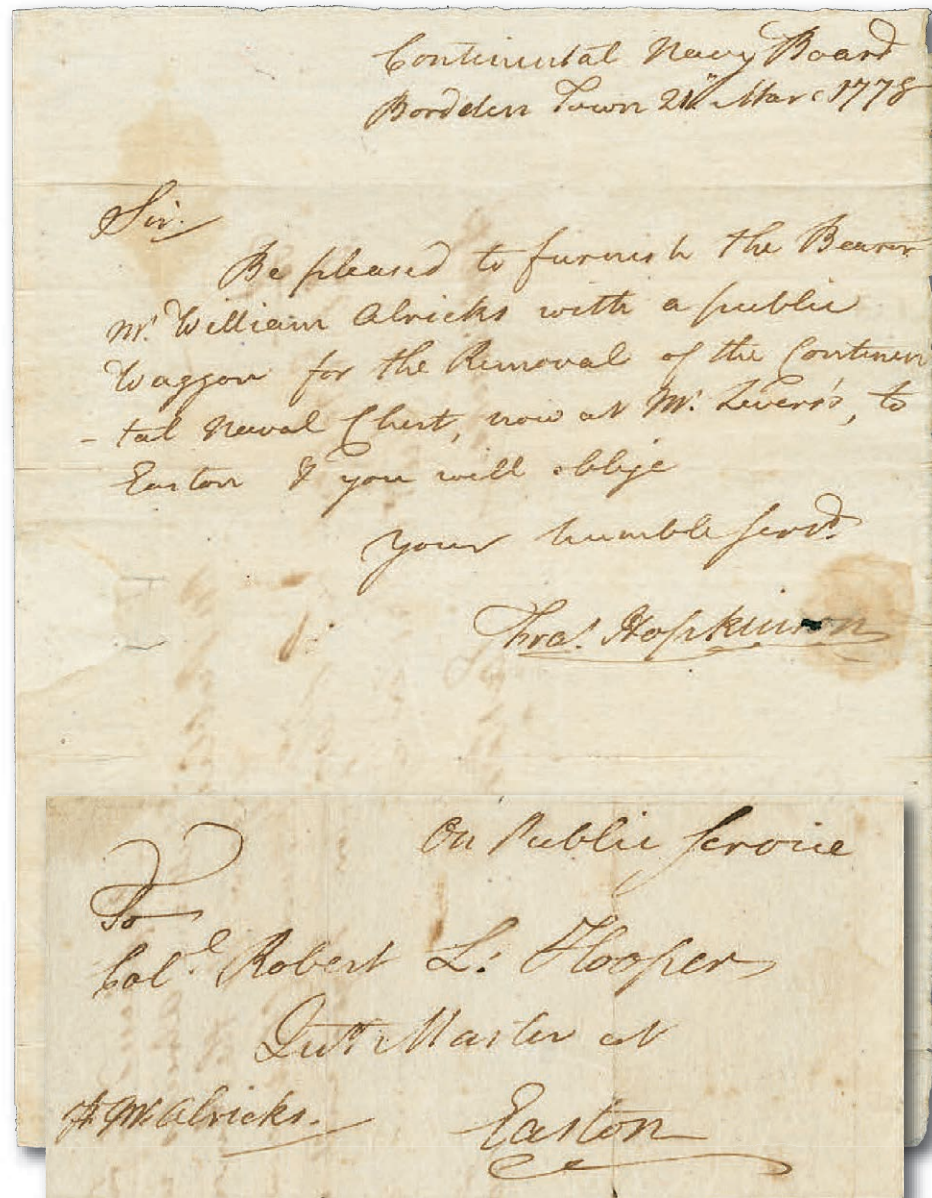 Continental Navy Board
Borden Town 21st Marc 1778
Sir.
Be pleased to furnish the Bearer
Mr. William Alricks with a public
Waggon for the Removal of the Continen
-tal Naval Chest, now at Mr. Levers's, to
Easton & you will oblige
Your humble servt.
Fras. Hopkinson
On Public Service
To
Coll. Robert L: Hooper
Qutr Master at
Easton
Mr. Alricks.